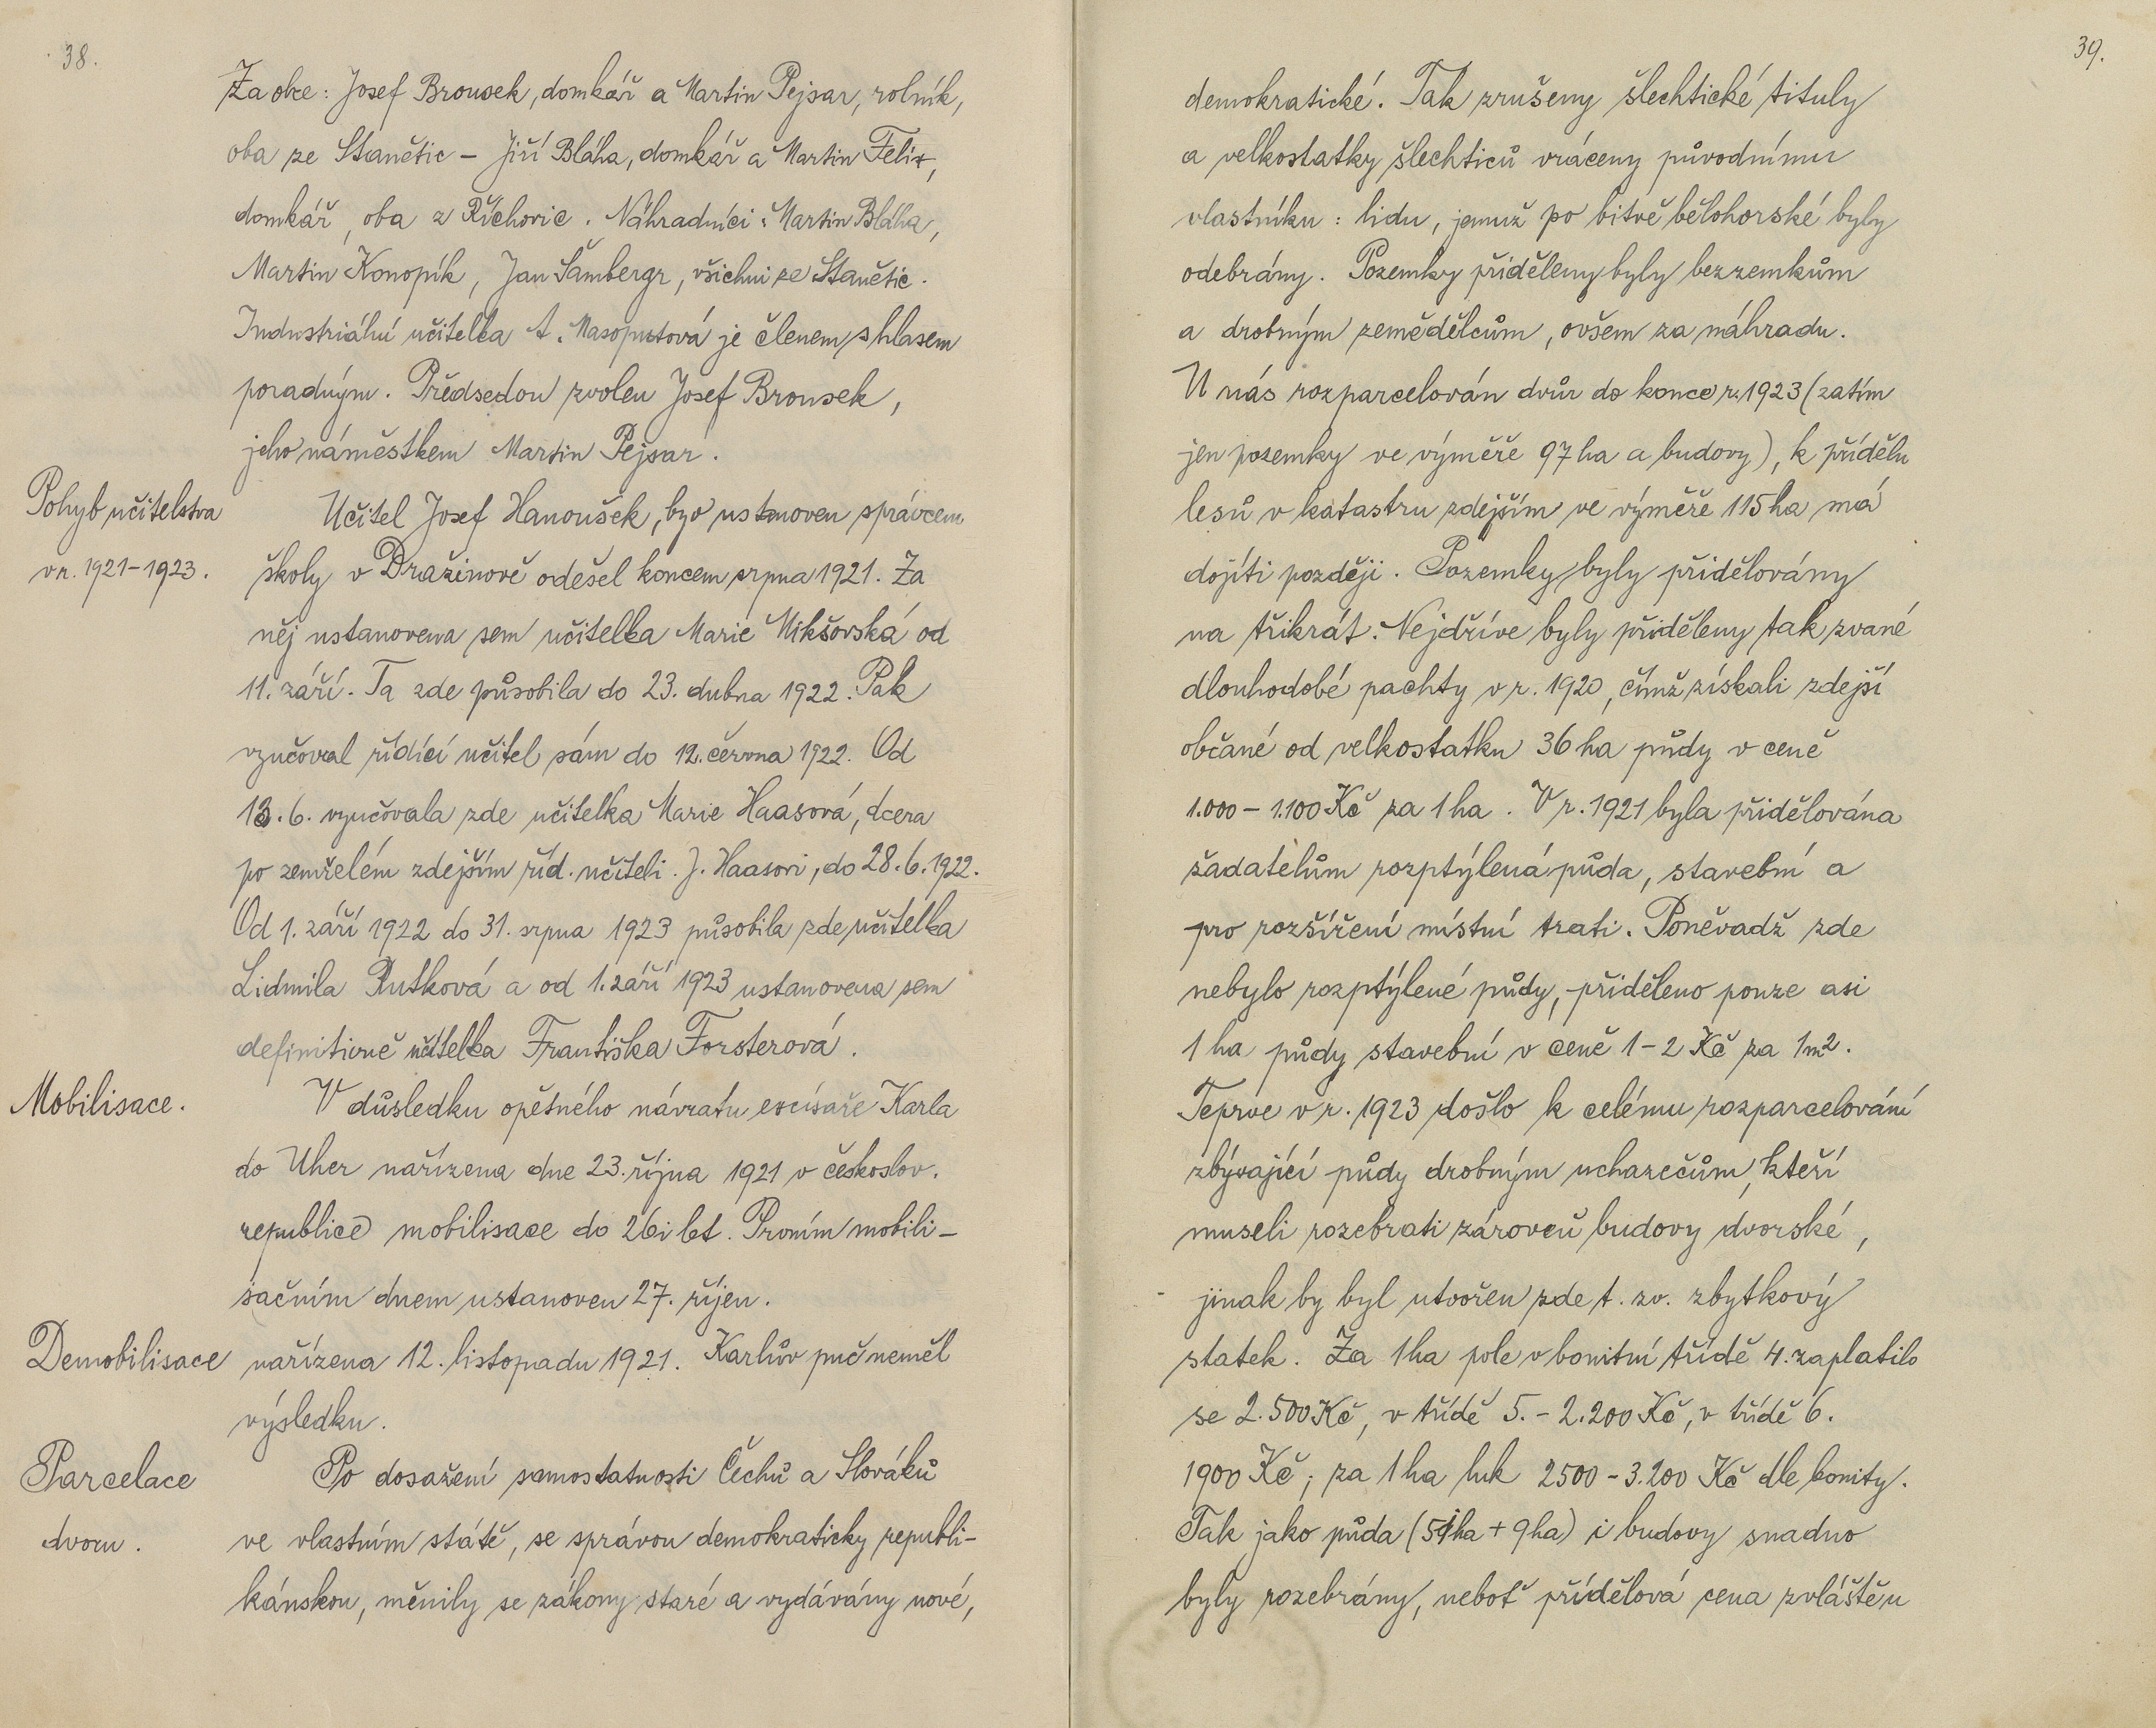 38.
Za obce: Josef Brousek, domkář a Martin Pejsar, rolník,
oba ze Stanětic – Jiří Bláha, domkář a Martin Felix,
domkář, oba z Říchovic. Náhradníci: Martin Bláha,
Martin Konopík, Jan Šambergr, všichni ze Stanětic.
Industriální učitelka A. Masopustová je členem s hlasem
poradným. Předsedou zvolen Josef Brousek,
jeho náměstkem Martin Pejsar.
Pohyb učitelstva
v r. 1921–1923.
Učitel Josef Hanoušek, byv ustanoven správcem
školy v Dražinově odešel koncem srpna 1921. Za
něj ustanovena sem učitelka Marie Mikšovská od
11. září. Ta zde působila do 23. dubna 1922. Pak
vyučoval řídící učitel sám do 12. června 1922. Od
13. 6. vyučovala zde učitelka Marie Haasová, dcera
po zemřelém zdejším říd. učiteli J. Haasovi, do 28. 6. 1922.
Od 1. září 1922 do 31. srpna 1923 působila zde učitelka
Lidmila Rutková a od 1. září 1923 ustanovena sem
definitivně učitelka Františka Forsterová.
Mobilisace.
V důsledku opětného návratu excísaře Karla
do Uher nařízena dne 23. října 1921 v českoslov.
republice mobilisace do 26i let. Prvním mobili-
sačním dnem ustanoven 27. říjen.
Demobilisace nařízena 12. listopadu 1921. Karlův puč neměl
výsledku.
Parcelace
dvoru.
Po dosažení samostatnosti Čechů a Slováků
ve vlastním státě, se správou demokraticky republi-
kánskou, měnily se zákony staré a vydávány nové,
39.
demokratické. Tak zrušeny šlechtické tituly
a velkostatky šlechticů vráceny původnímu
vlastníku: lidu, jemuž po bitvě bělohorské byly
odebrány. Pozemky přiděleny byly bezzemkům
a drobným zemědělcům, ovšem za náhradu.
U nás rozparcelován dvůr do konce r. 1923 (zatím
jen pozemky ve výměře 97 ha a budovy), k přídělu
lesů v katastru zdejším ve výměře 115 ha má
dojíti později. Pozemky byly přidělovány
na třikrát. Nejdříve byly přiděleny tak zvané
dlouhodobé pachty v r. 1920, čímž získali zdejší
občané od velkostatku 36 ha půdy v ceně
1.000 – 1.100 Kč za 1 ha. V r. 1921 byla přidělována
žadatelům rozptýlená půda, stavební a
pro rozšíření místní trati. Poněvadž zde
nebylo rozptýlené půdy, přiděleno pouze asi
1 ha půdy stavební v ceně 1–2 Kč za 1 m2.
Teprve v r. 1923 došlo k celému rozparcelování
zbývající půdy drobným uchazečům, kteří
museli rozebrati zároveň budovy dvorské,
jinak by byl utvořen zde t. zv. zbytkový
statek. Za 1 ha pole v bonitní třídě 4. zaplatilo
se 2.500 Kč, v třídě 5. – 2.200 Kč, v třídě 6.
1900 Kč; za 1 ha luk 2500 – 3.200 Kč dle bonity.
Tak jako půda ( + 9 ha) i budovy snadno
byly rozebrány, neboť přídělová cena zvláště u